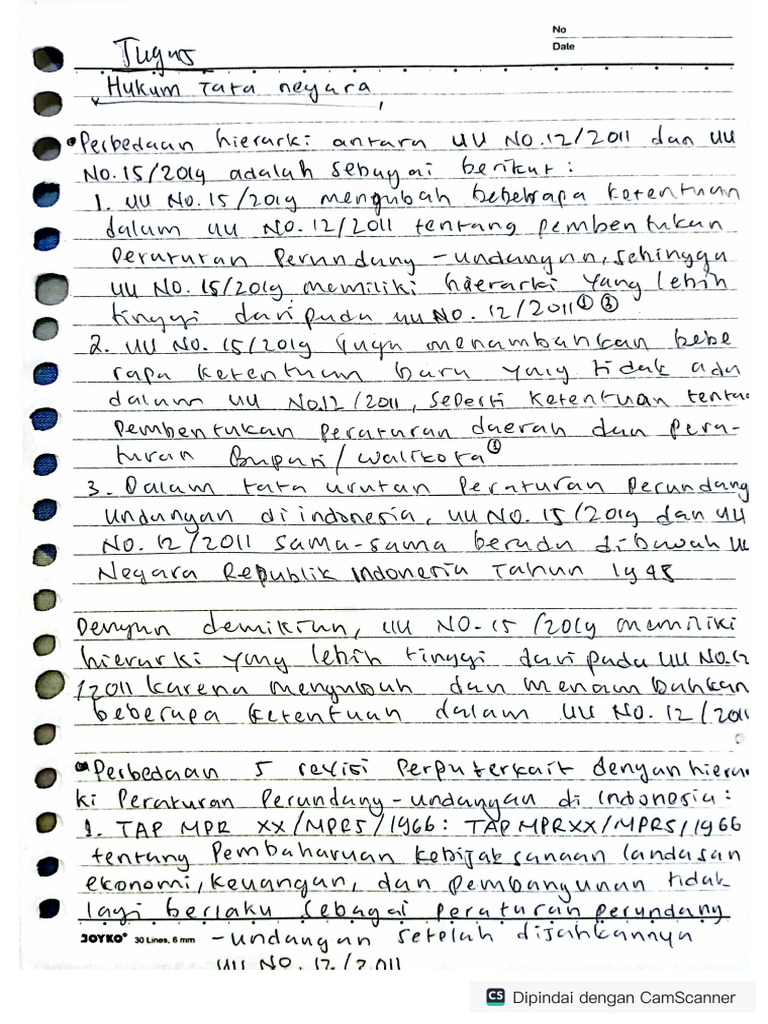 No
Date
Tugas
Hukum Tata negara
Perbedaan hierarki antara UU NO.12/2011 dan UU
No.15/2019 adalah sebagai berikut :
1. UU No.15/2019 mengubah bebebrapa ketentuan
dalam UU NO.12/2011 tentang pembentukan
Peraturan Perundang-undangan, sehingga
UU NO.15/2019 memiliki hierarki yang lebih
tinggi daripada UU NO.12/2011 ① ③
2. UU NO.15/2019 juga menambahkan bebe
rapa ketentuan baru yang tidak ada
dalam UU No.12/2011, seperti ketentuan tenta
Pembentukan Peraturan daerah dan Pera-
turan Bupati/walikota ①
3. Dalam tata urutan Peraturan Perundang
undangan di indonesia, UU NO.15/2019 dan UU
NO.12/2011 sama-sama berada dibawah UU
Negara Republik Indonesia Tahun 1945
Dengan demikian, UU NO-15/2019 memiliki
hierarki yang lebih tinggi daripada UU No.12
/2011 karena mengubah dan menambahkan
beberapa ketentuan dalam UU NO.12/2011
Perbedaan 5 revisi Perpu terkait dengan hierar
ki Peraturan Perundang-undangan di Indonesia :
1. TAP MPR XX/MPRS/1966: TAP MPR XX/MPRS/1966
tentang Pembaharuan kebijaksanaan landasan
ekonomi, keuangan, dan Pembangunan tidak
lagi berlaku sebagai Peraturan perundang
-undangan setelah disahkannya
UU NO.12/2011
JOYKO 30 Lines, 6 mm
CS Dipindai dengan CamScanner